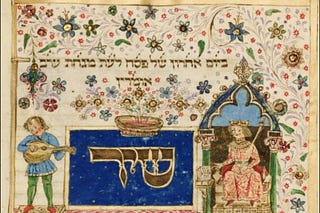 ביום אחרון של פסח לעת מנחת ערב
אומרין
שיר